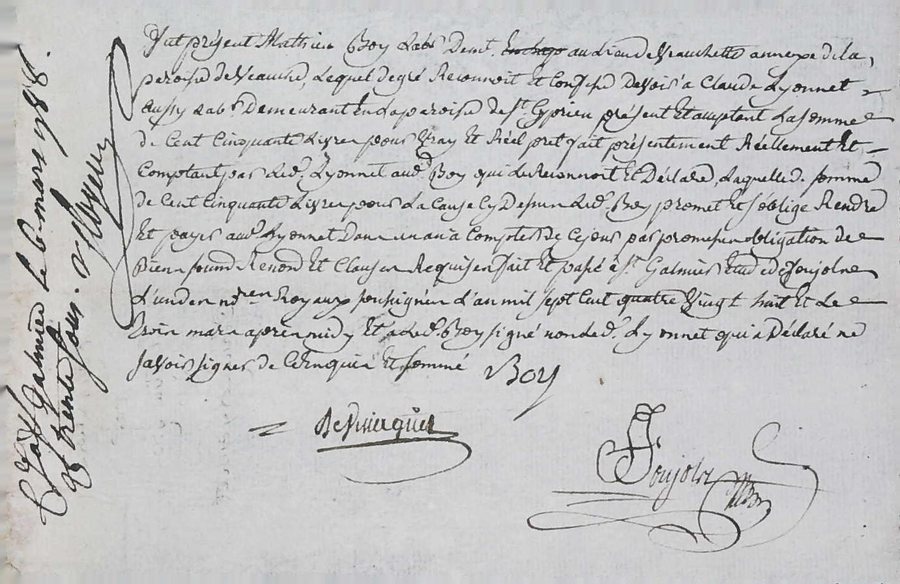 fut présent Mathieu Boy labr demt au lieu de Veauchette annexe de la
paroisse de Veauche, Lequel de gré Reconnoit Et Confesse Devoir a Claude Lyonnet
aussy Labr Demeurant En La paroisse de St Cyprien présent Et acceptant La somme
de Cent Cinquante Livres pour Vray Et Réél pret fait présentement Réellement Et
Comptant par Led. Lyonnet aud. Boy qui Le Reconnoit Et Déclare, Laquelle d. somme
de Cent Cinquante Livres pour La Cause Cy Dessus Led. Boy promet Et s'oblige Rendre
Et payer aud. Lyonnet Dans un an a Compter de Ce jour par promesses obligation de
Biens soumd Renond Et Clauses Requises fait Et passé à St Galmier Etude de Foujols
L'un des nres Royaux soussignés L'an mil sept Cent quatre Vingt huit Et Le
trois mars apres midy Et a Led. Boy signé non Led. Lyonnet qui a Déclaré ne
savoir signer de Ce Enquis Et sommé Boy
Foujols
St Galmier le 6 mars 1788.
trente sous.